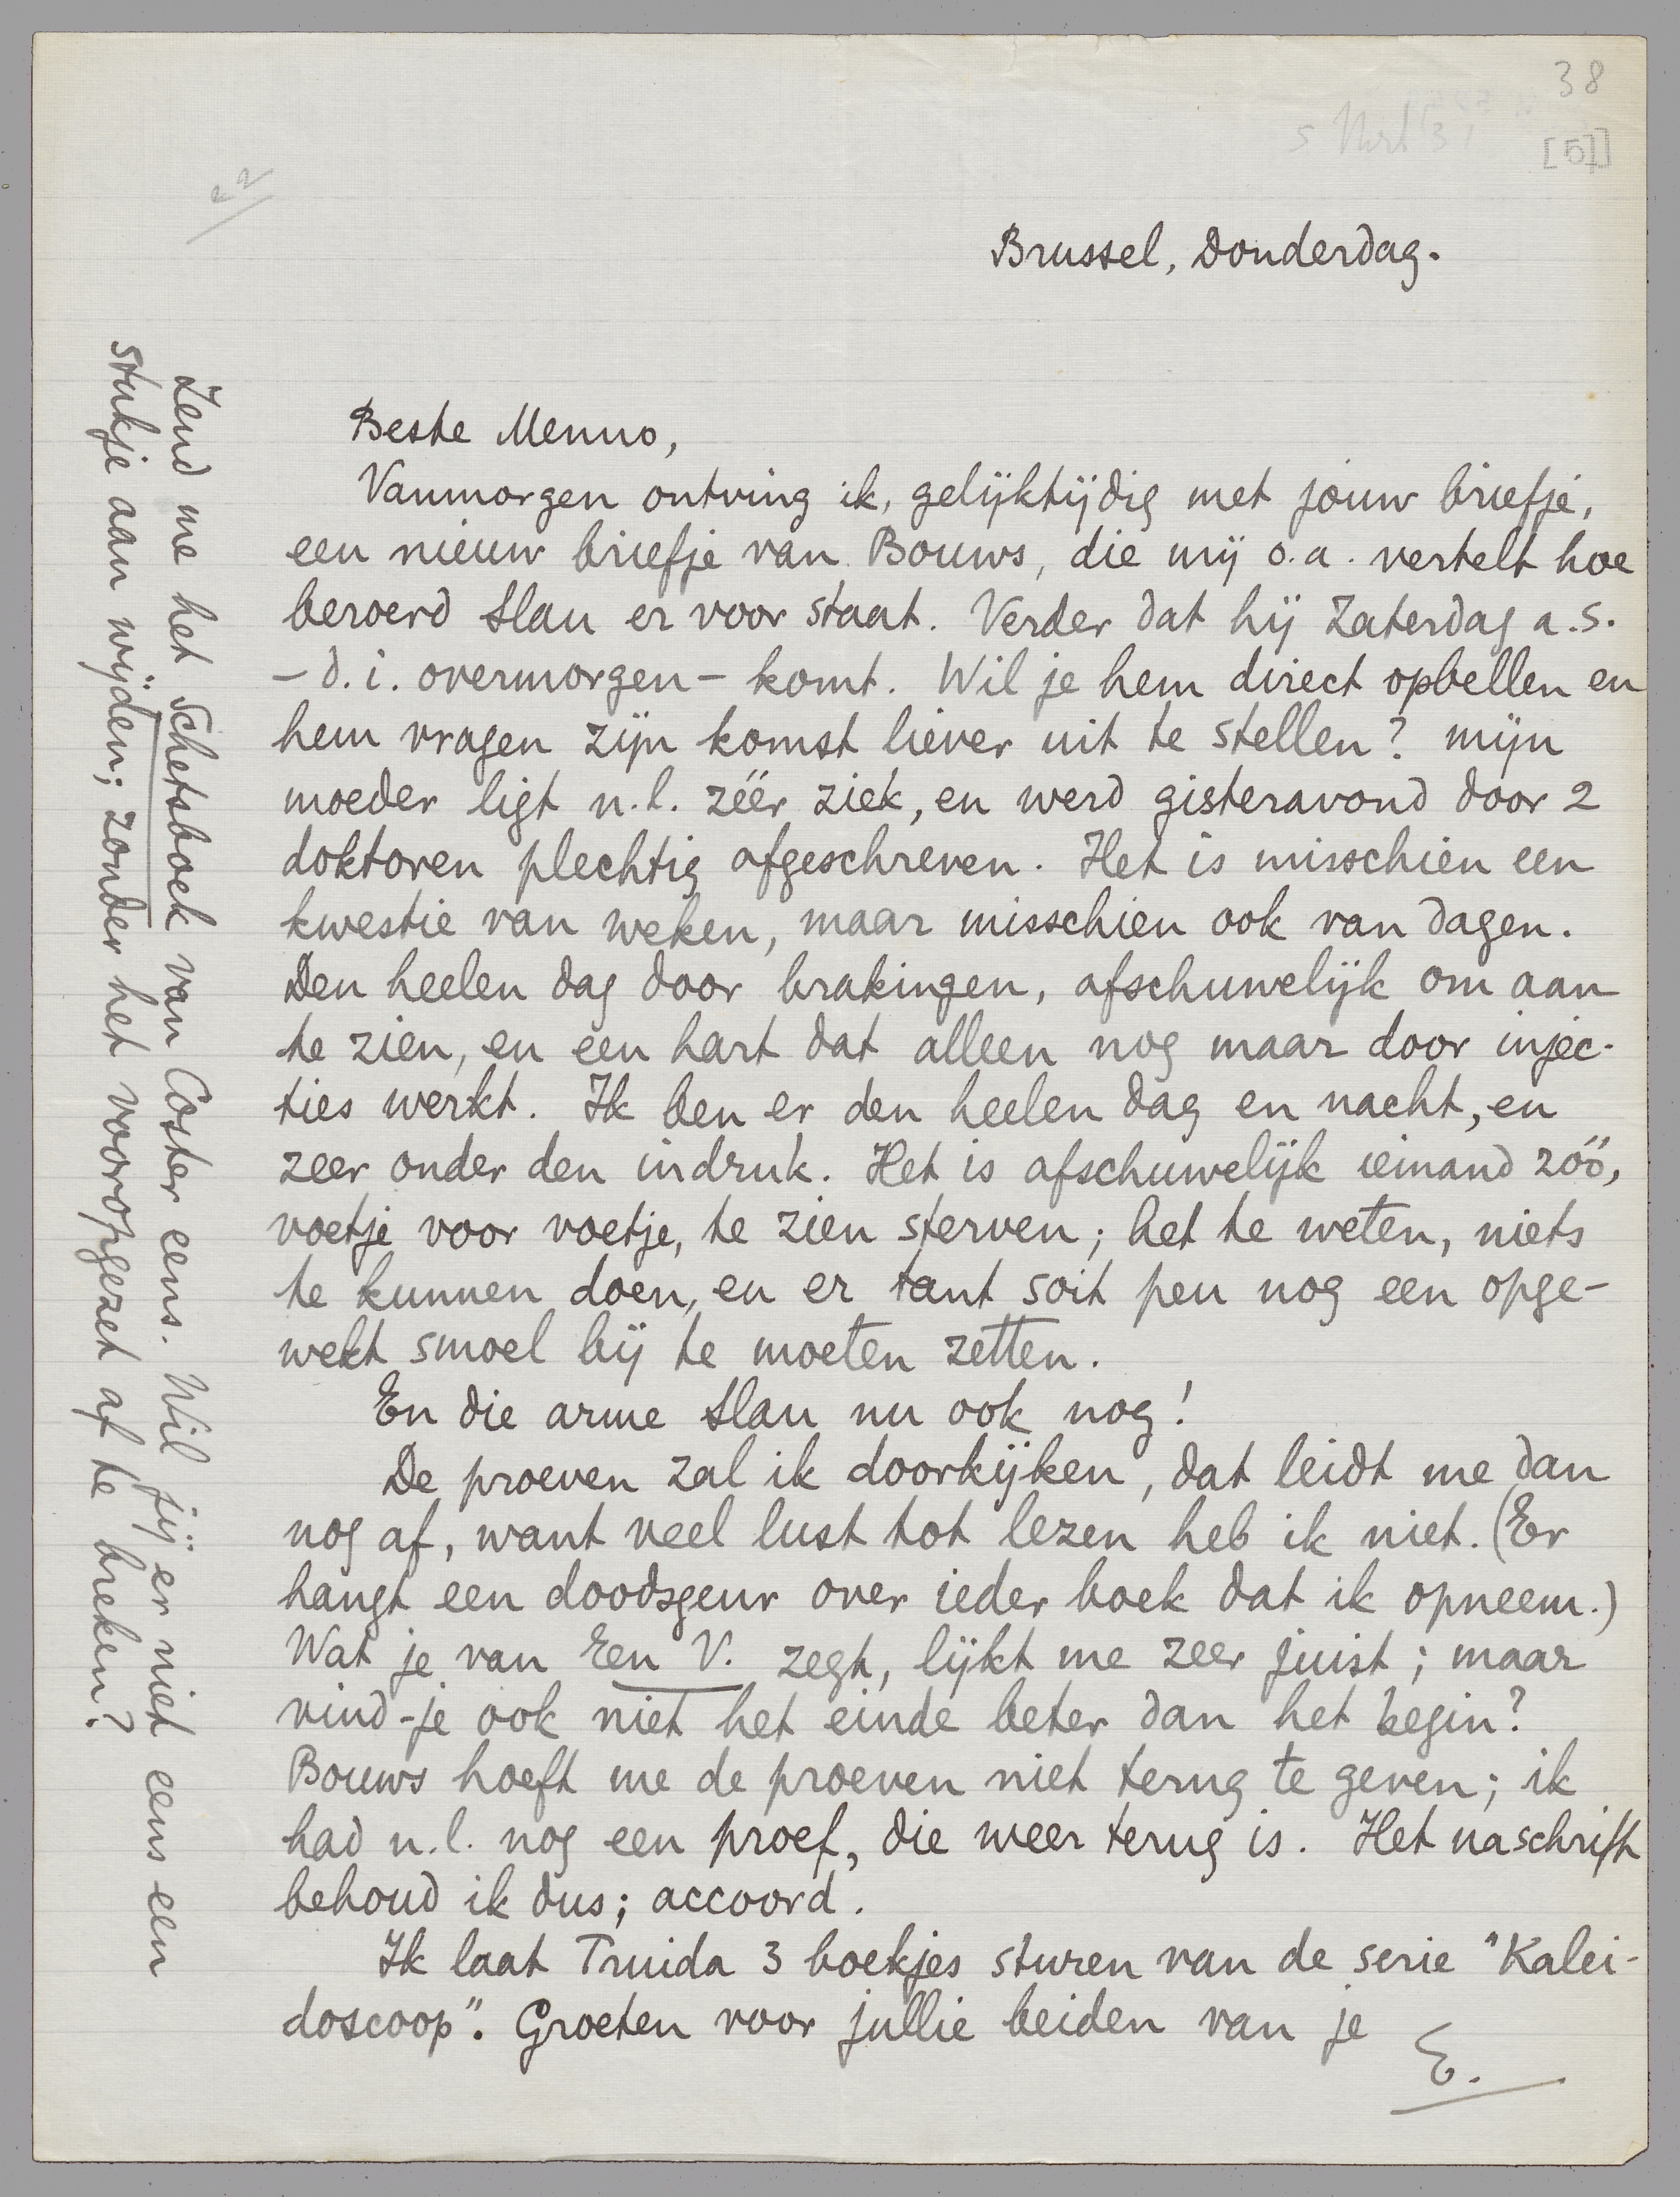 38
[5]
22
Brussel, Donderdag.
Beste Menno,
Vanmorgen ontving ik, gelijktijdig met jouw briefje,
een nieuw briefje van Bouws, die mij o.a. vertelt hoe
beroerd Slau er voor staat. Verder dat hij Zaterdag a.s.
– d.i. overmorgen – komt. Wil je hem direct opbellen en
hem vragen zijn komst liever uit te stellen? mijn
moeder ligt n.l. zéér ziek, en werd gisteravond door 2
doktoren plechtig afgeschreven. Het is misschien een
kwestie van weken, maar misschien ook van dagen.
Den heelen dag door brakingen, afschuwelijk om aan
te zien, en een hart dat alleen nog maar door injec-
ties werkt. Ik ben er den heelen dag en nacht, en
zeer onder den indruk. Het is afschuwelijk iemand zóó,
voetje voor voetje, te zien sterven; het te weten, niets
te kunnen doen, en er tant soit peu nog een opge-
wekt smoel bij te moeten zetten.
En die arme Slau nu ook nog!
De proeven zal ik doorkijken, dat leidt me dan
nog af, want veel lust tot lezen heb ik niet. (Er
hangt een doodsgeur over ieder boek dat ik opneem.)
Wat je van Een V. zegt, lijkt me zeer juist; maar
vind-je ook niet het einde beter dan het begin?
Bouws hoeft me de proeven niet terug te geven; ik
had n.l. nog een proef, die weer terug is. Het naschrift
behoud ik dus; accoord.
Ik laat Truida 3 boekjes sturen van de serie "Kalei-
doscoop". Groeten voor jullie beiden van je
E.
Zend me het Schetsboek van Coster eens. Wil jij er niet eens een
stukje aan wijden; zonder het vooropgezet af te breken?